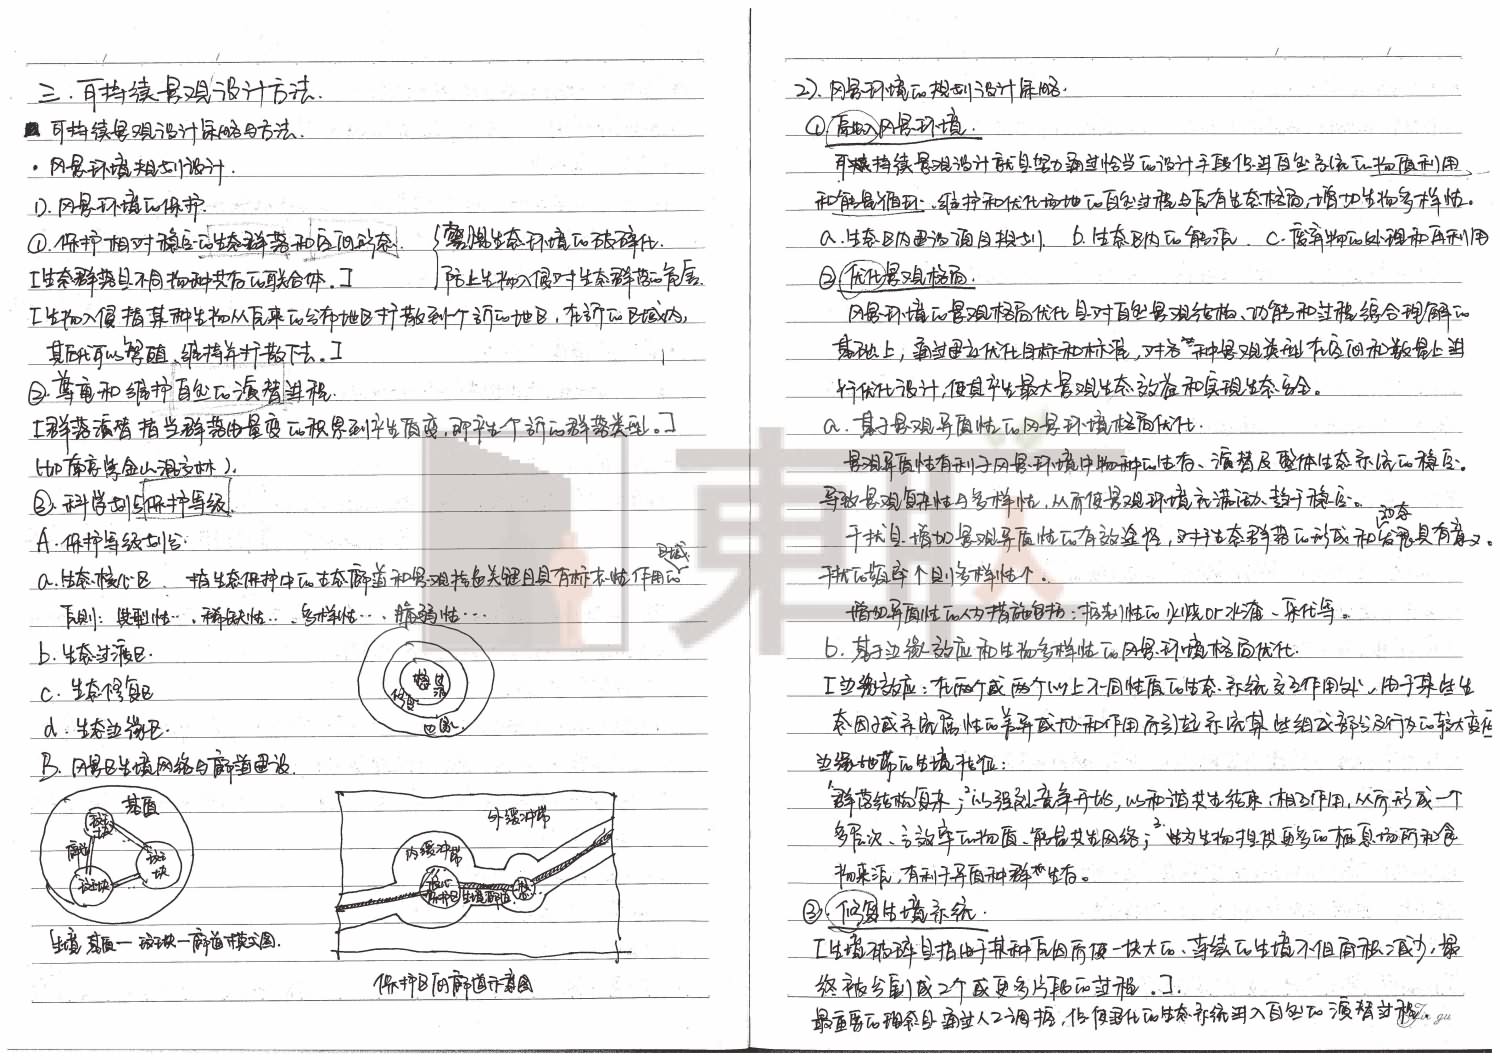 三.可持续景观设计方法.
■ 可持续景观设计策略与方法.
· 风景环境规划设计.
1).风景环境的保护.
①.保护相对稳定的生态群落和空间形态.
[生态群落是不同物种共存的联合体.]
缓解生态环境的破碎化.
防止生物入侵对生态群落的危害.
[生物入侵指某种生物从原来的分布地区扩散到个新的地区,在新的区域内,
其后代可以繁殖、维持并扩散下去。]
②.尊重和维护自然的演替进程.
[群落演替指当群落由量变的积累到产生质变,即产生个新的群落类型。]
(如南京紫金山混交林).
③.科学划分保护等级.
A.保护等级划分.
a.生态核心区. 指生态保护中的生态廊道和景观格局关键且具有标志性作用的
区域.
原则:典型性…、稀缺性…、多样性…、脆弱性…
b.生态过渡区.
c.生态修复区
d.生态边缘区.
B.风景区生境网络与廊道建设.
基质
斑块
廊道
斑块
斑块
生境 基质—斑块—廊道模式图.
核心
过渡
修复
边缘
外缓冲带
内缓冲带
核心
保护区
生境廊道
保护区间廊道示意图
2).风景环境的规划设计策略.
① 融入风景环境.
可持续景观设计就是努力通过恰当的设计手段促进自然系统的物质利用
和能量循环、维护和优化场地的自然过程与原有生态格局,增加生物多样性。
a.生态区内建设项目规划 b.生态区内的能源. c.废弃物的处理和再利用
② 优化景观格局.
风景环境的景观格局优化是对自然景观结构、功能和过程综合理解的
基础上,通过建立优化目标和标准,对各种景观类型在空间和数量上进
行优化设计,使其产生最大景观生态效益和实现生态安全。
a.基于景观异质性的风景环境格局优化.
景观异质性有利于风景环境中物种的生存、演替及整体生态系统的稳定。
导致景观复杂性与多样性,从而使景观环境充满活动、趋于稳定。
干扰是增加景观异质性的有效途径,对于生态群落的形成和动态发展具有意义。
干扰的频率个则多样性个。
增加异质性的人为措施包括:控制性的火烧or水淹、采伐等。
b.基于边缘效应和生物多样性的风景环境格局优化.
[边缘效应:在两个或两个以上不同性质的生态系统交互作用处,由于某些生
态因子或系统属性的差异或协和作用而引起系统某些组成部分及行为的较大变化
边缘地带的生境特征:
群落结构复杂;²以强烈竞争开始,以和谐共生结束,相互作用,从而形成一个
多层次、高效率的物质、能量共生网络;³.也为生物提供更多的栖息场所和食
物来源,有利于异质种群生存。
③.修复生境系统.
[生境破碎是指由于某种原因而使一块大的、连续的生境不但面积减少,最
终被分割成2个或更多片段的过程。].
最重要的理念是通过人工调控,促使退化的生态系统进入自然的演替过程
東
Jin gu